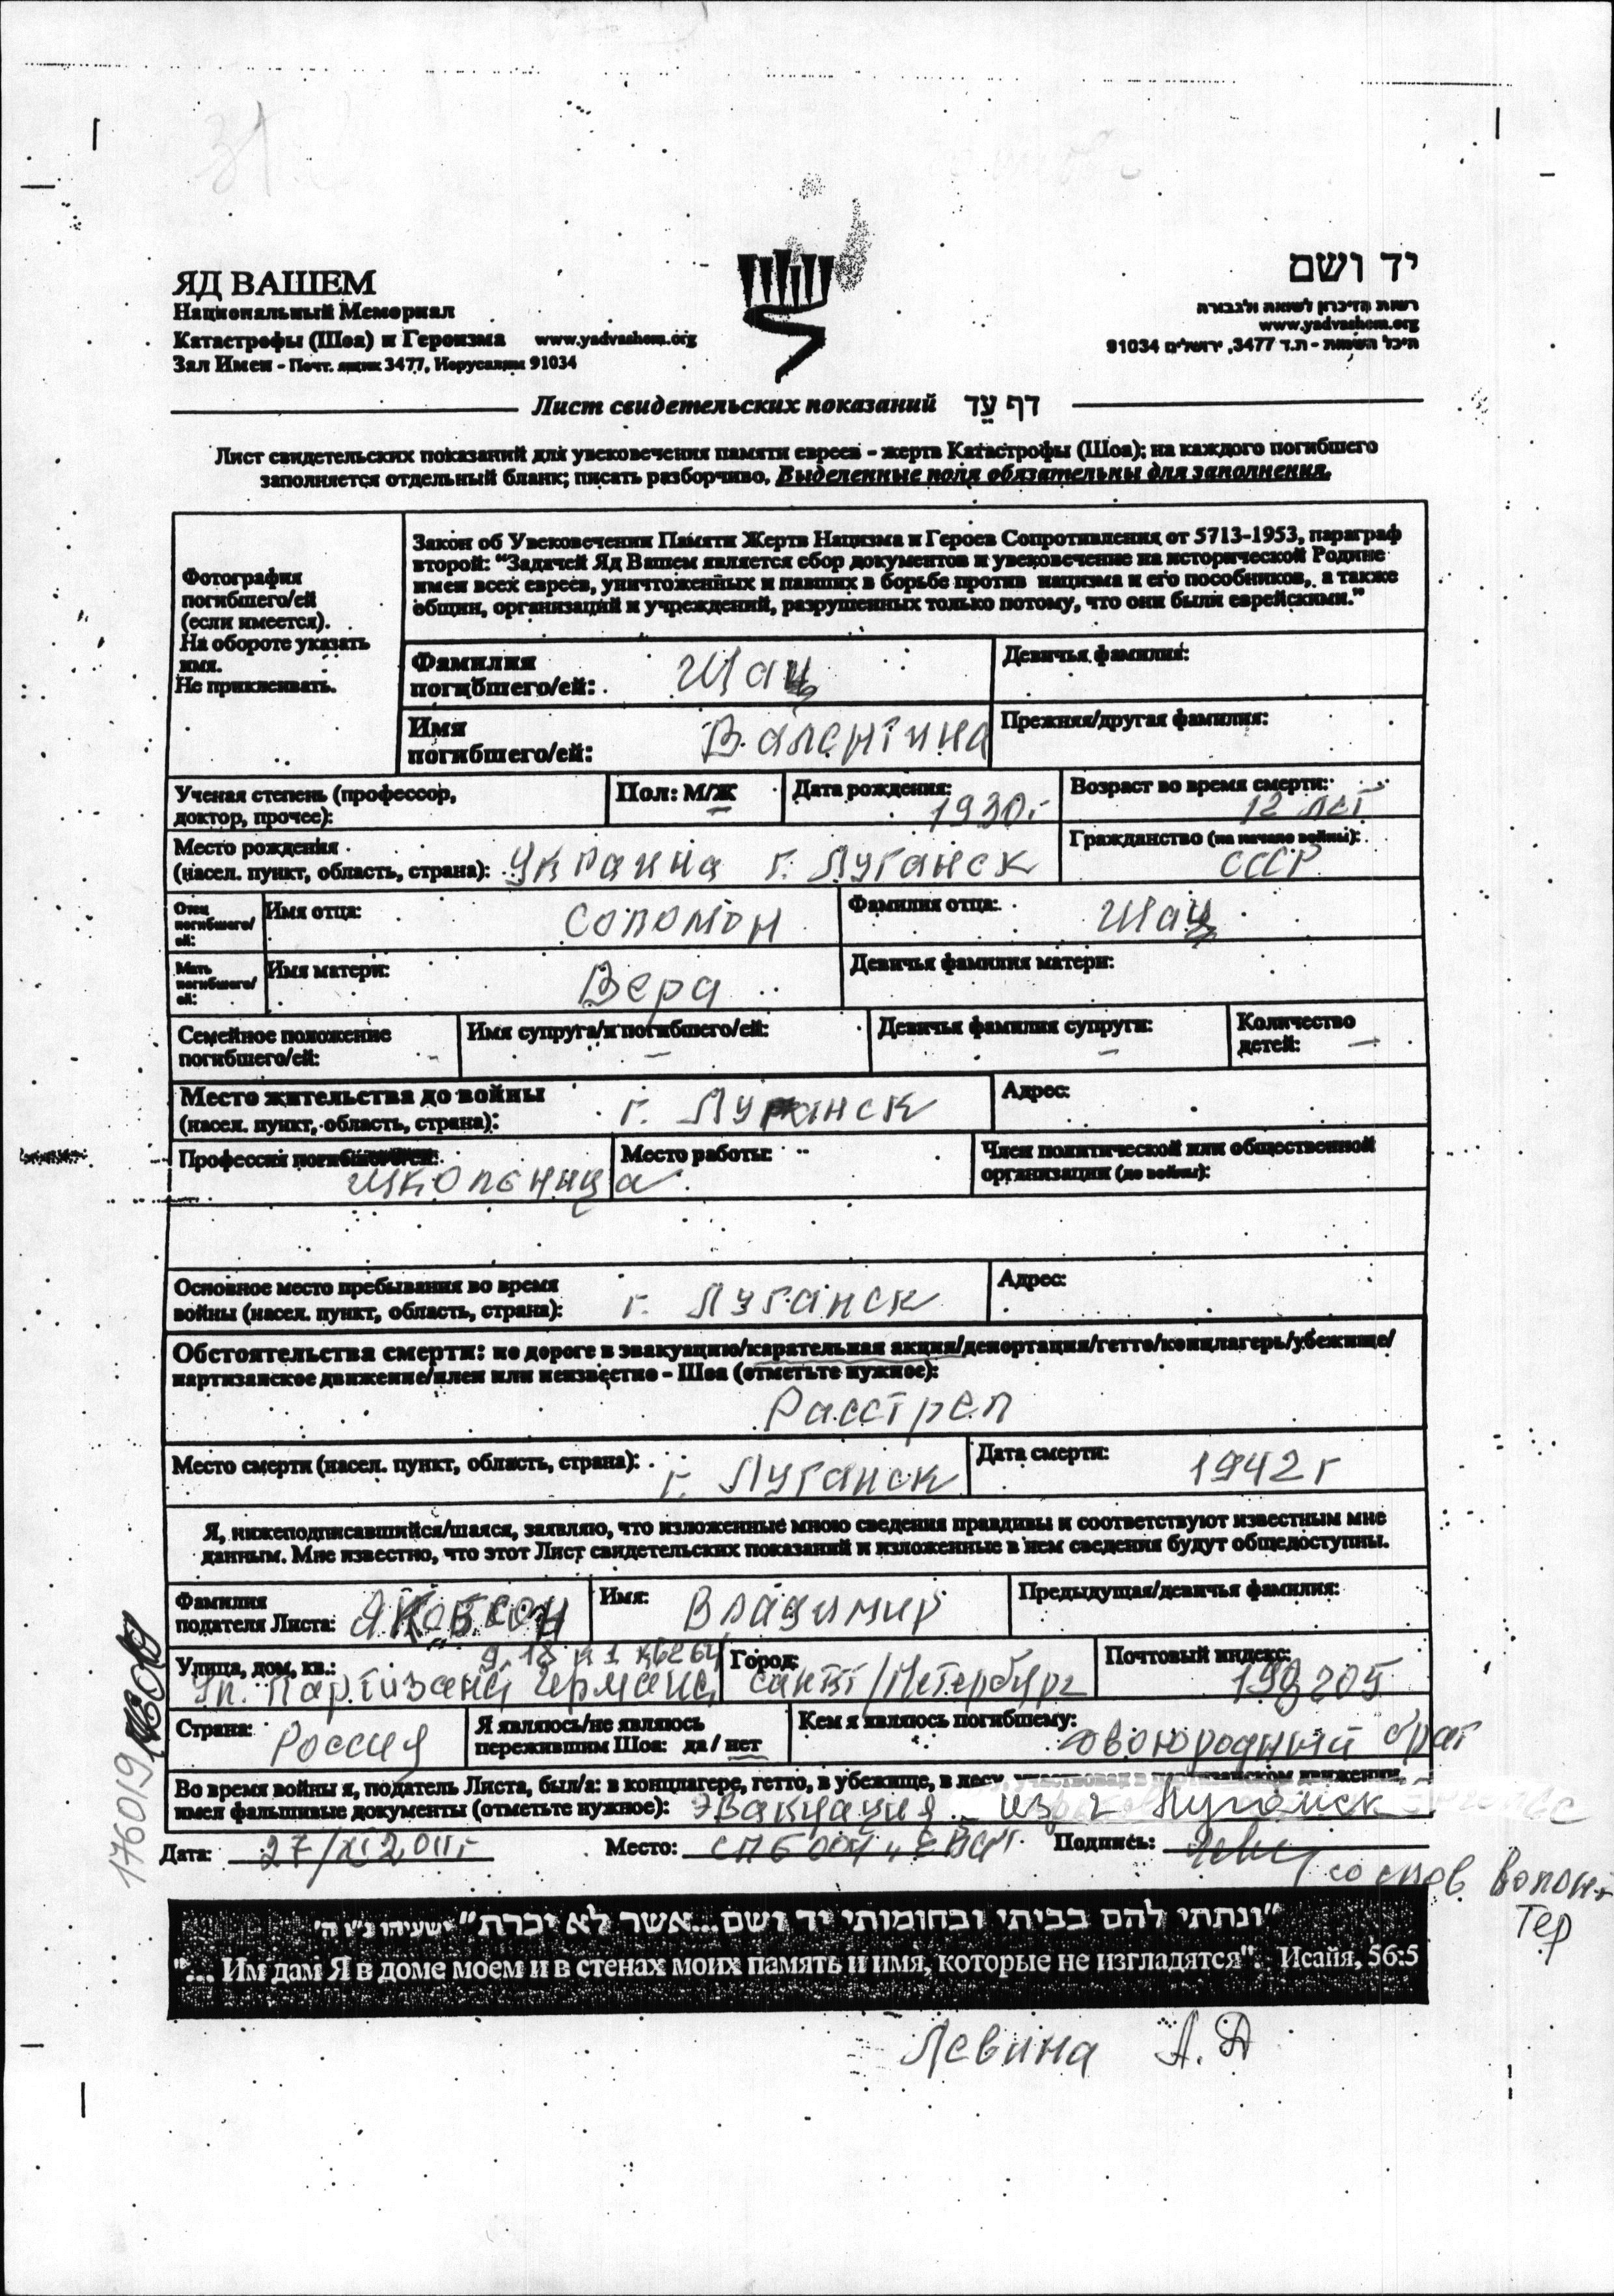 ЯД ВАШЕМ
Национальный Мемориал
Катастрофы (Шоа) и Героизма www.yadvashem.org
Зал Имен - Почт. ящик 3477, Иерусалим 91034
יד ושם
רשות הזיכרון לשואה ולגבורה
www.yadvashem.org
היכל השמות - ת.ד 3477, ירושלים 91034
Лист свидетельских показаний דף עֵד
Лист свидетельских показаний для увековечения памяти евреев - жертв Катастрофы (Шоа); на каждого погибшего
заполняется отдельный бланк; писать разборчиво. Выделенные поля обязательны для заполнения.
Фотография
погибшего/ей
(если имеется).
На обороте указать
имя.
Не приклеивать.
Закон об Увековечении Памяти Жертв Нацизма и Героев Сопротивления от 5713-1953, параграф
второй: "Задачей Яд Вашем является сбор документов и увековечение на исторической Родине
имен всех евреев, уничтоженных и павших в борьбе против нацизма и его пособников, а также
общин, организаций и учреждений, разрушенных только потому, что они были еврейскими."
Фамилия
погибшего/ей: Шац
Девичья фамилия:
Имя
погибшего/ей: Валентина
Прежняя/другая фамилия:
Ученая степень (профессор,
доктор, прочее):
Пол: М/Ж
Дата рождения: 1930г
Возраст во время смерти: 12 лет
Место рождения
(насел. пункт, область, страна): Украина г. Луганск
Гражданство (на начало войны): СССР
Отец
погибшего/
ей:
Имя отца: Соломон
Фамилия отца: Шац
Мать
погибшего/
ей:
Имя матери: Вера
Девичья фамилия матери:
Семейное положение
погибшего/ей: -
Имя супруга/и погибшего/ей: -
Девичья фамилия супруги: -
Количество
детей: -
Место жительства до войны
(насел. пункт, область, страна): г. Луганск
Адрес:
Профессия погибшего/ей: школьница
Место работы:
Член политической или общественной
организации (до войны):
Основное место пребывания во время
войны (насел. пункт, область, страна): г. Луганск
Адрес:
Обстоятельства смерти: по дороге в эвакуацию/карательная акция/депортация/гетто/концлагерь/убежище/
партизанское движение/плен или неизвестно - Шоа (отметьте нужное):
Расстрел
Место смерти (насел. пункт, область, страна): г. Луганск
Дата смерти: 1942 г
Я, нижеподписавшийся/шаяся, заявляю, что изложенные мною сведения правдивы и соответствуют известным мне
данным. Мне известно, что этот Лист свидетельских показаний и изложенные в нем сведения будут общедоступны.
Фамилия
подателя Листа: Якобсон
Имя: Владимир
Предыдущая/девичья фамилия:
Улица, дом, кв.: ул. Партизана Германа
Город: Санкт/Петербург
Почтовый индекс: 198205
Страна: Россия
Я являюсь/не являюсь
пережившим Шоа: да / нет
Кем я являюсь погибшему: двоюродный брат
Во время войны я, податель Листа, был/а: в концлагере, гетто, в убежище, в лесу, участвовал в партизанском движении,
имел фальшивые документы (отметьте нужное): Эвакуация из г Луганск
Дата: 27/XI 2011г
Место: СПб
Подпись:
со слов Волон-
тер
176019
"ונתתי להם בביתי ובחומותי יד ושם...אשר לא יכרת" ישעיהו נ"ו ה'
"... Им дам Я в доме моем и в стенах моих память и имя, которые не изгладятся". Исайя, 56:5
Левина А.Д